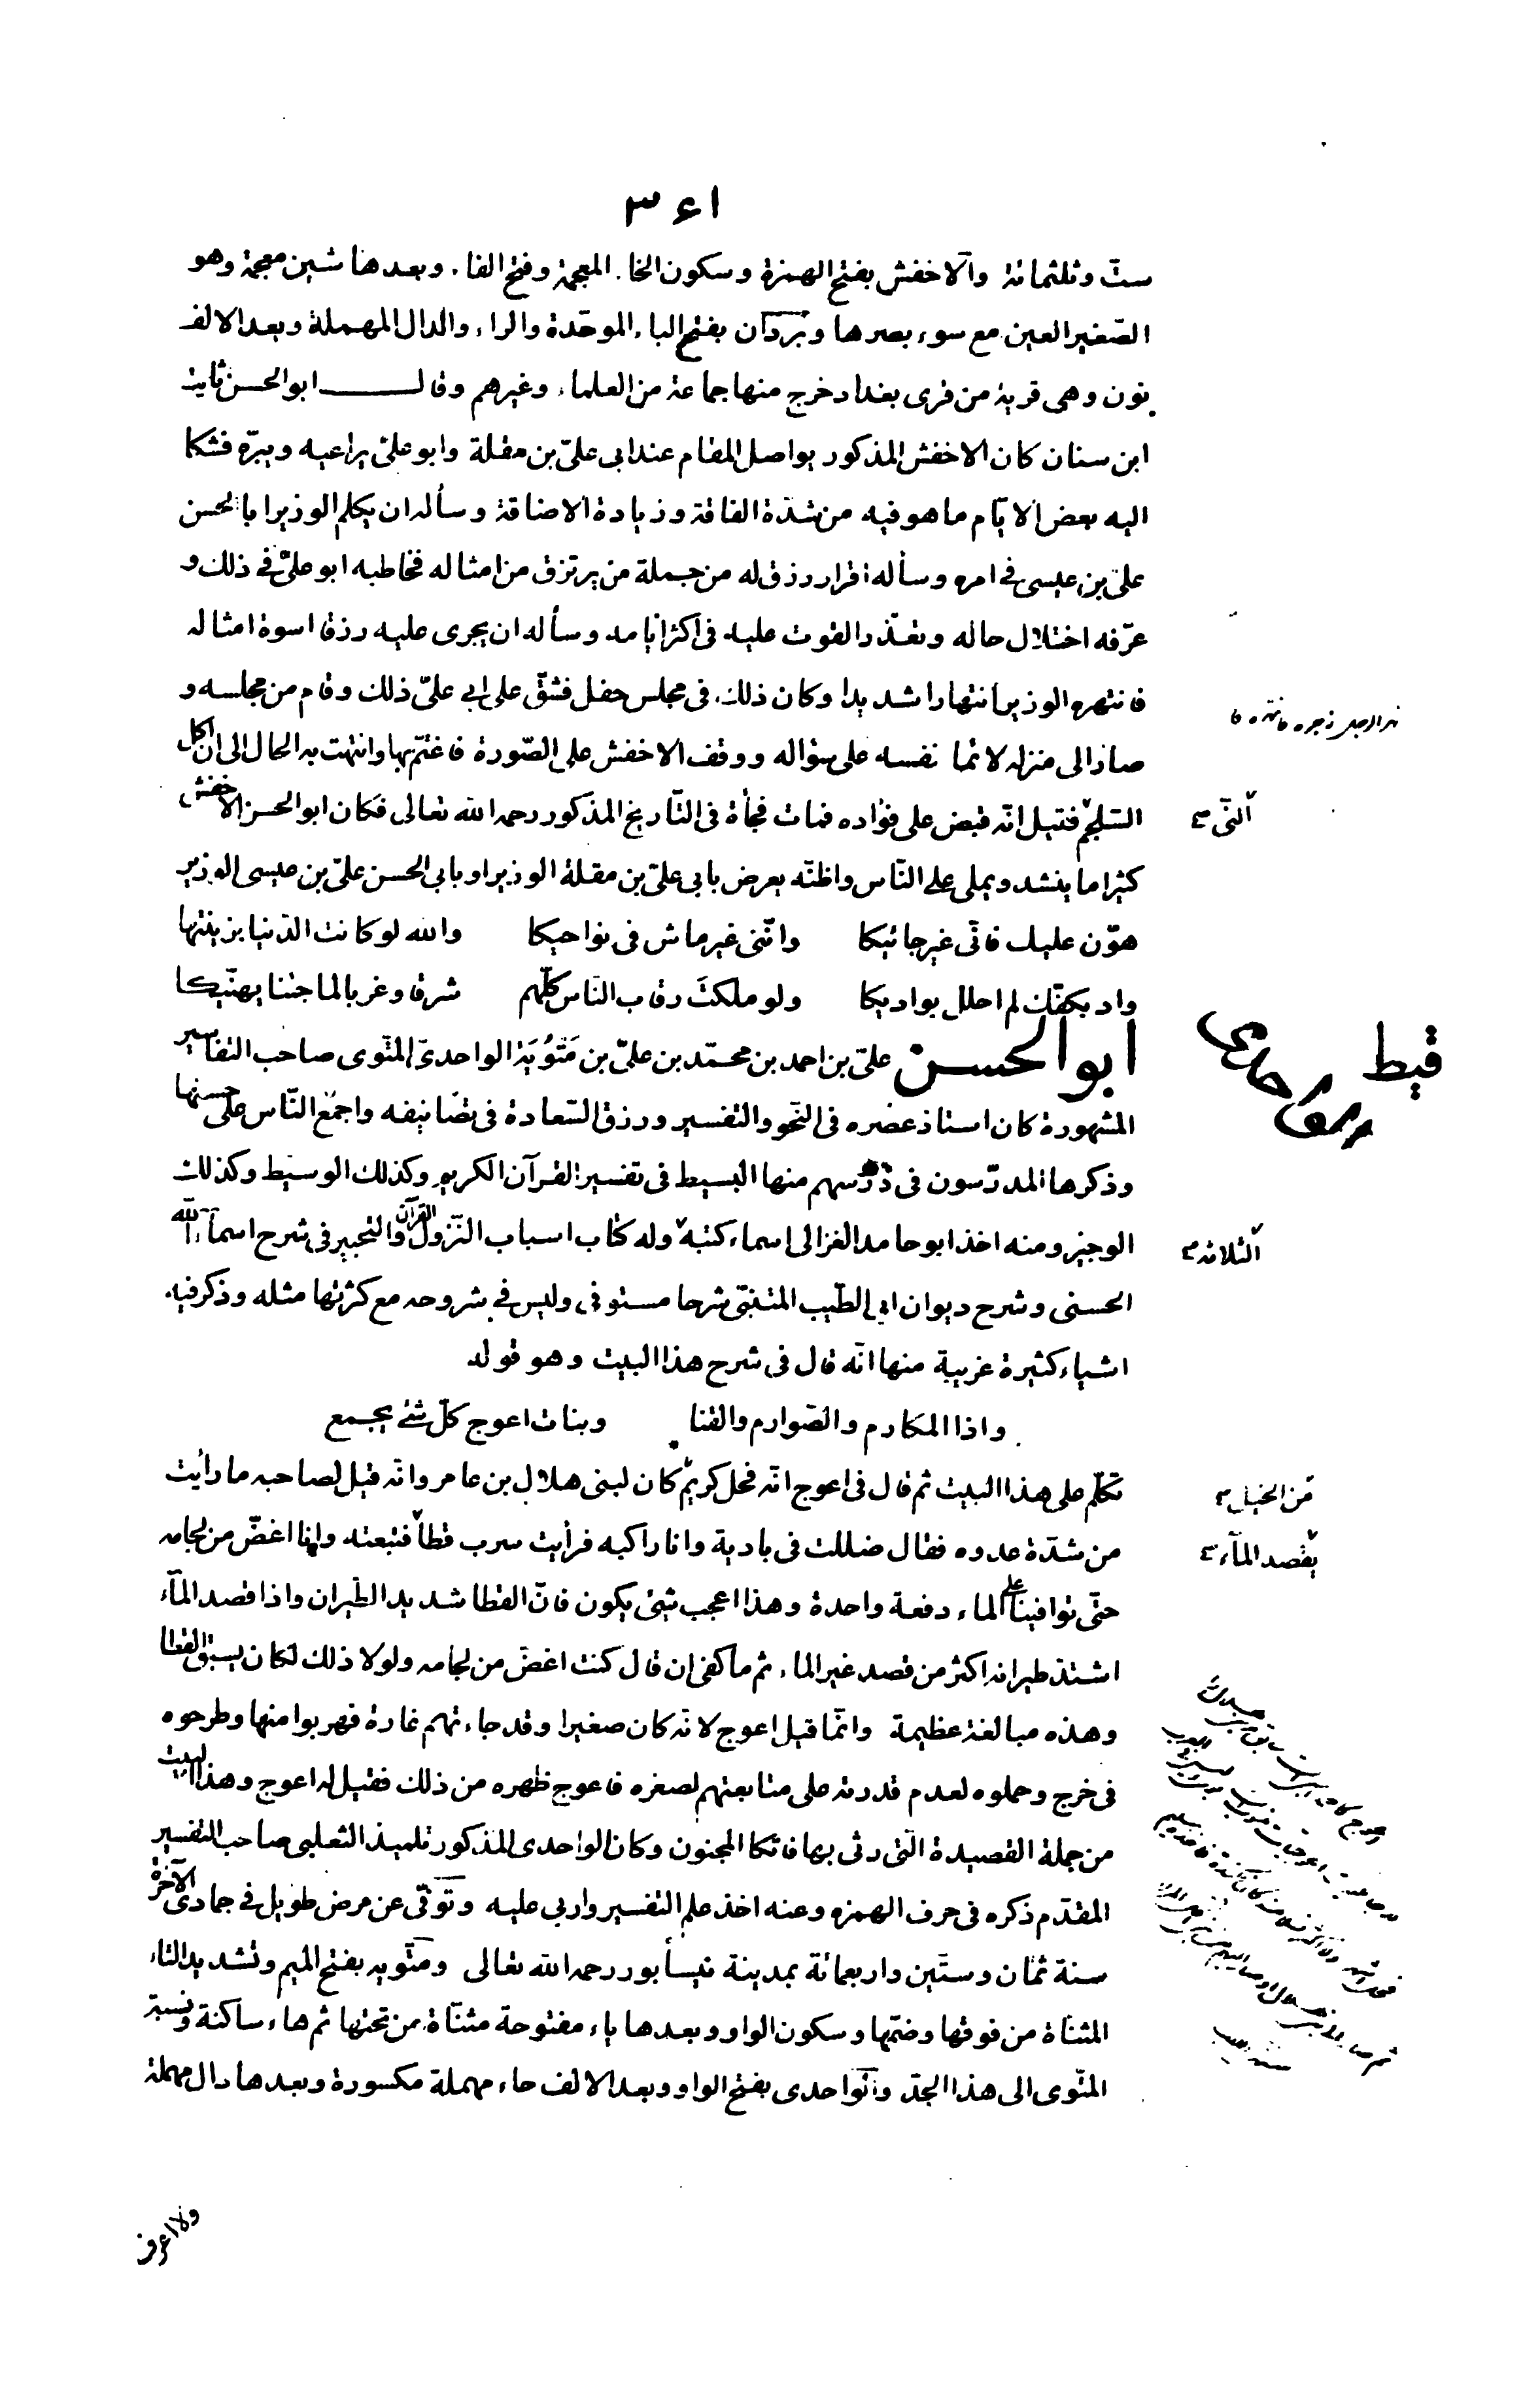 ٣٤١
ستّ وثلثمائة والاخفش بفتح الهمزة وسكون الخاء المعجمة وفتح الفاء وبعدها شين معجمة وهو
الصّغير العين مع سوء بصرها وبَرَدان بفتح الباء الموحّدة والراء والدال المهملة وبعد الالف
نون وهى قرية من قرى بغداد خرج منها جماعة من العلماء وغيرهم وقال ابو الحسن ثابت
ابن سنان كان الاخفش المذكور يواصل المقام عند ابى علىّ بن مقلة وابو علىّ يراعيه ويبرّه فشكا
اليه بعض الايّام ما هو فيه من شدّة الفاقة وزيادة الاضاقة وسأله ان يكلم الوزير ابا الحسن
علىّ بن عيسى فى امره وسأله اقرار رزق له من جملة من يرتزق من امثاله فخاطبه ابو علىّ فى ذلك و
عرّفه اختلال حاله وتعذّر القوت عليه فى اكثر ايامه وسأله ان يجرى عليه رزقا اسوة امثاله
فانتهره الوزير انتهارا شديدا وكان ذلك فى مجلس حفل فشقّ على ابى علىّ ذلك وقام من مجلسه و
صار الى منزله لائما نفسه على سؤاله ووقف الاخفش على الصّورة فاغتمّ بها وانتهت به الحال الى ان اكل
السّلجم فقيل انّه قبض على فؤاده فمات فجأة فى التّاريخ المذكور رحمه الله تعالى فكان ابو الحسن الاخفش
النّىّ
كثيرا ما ينشد ويملى على النّاس واظنّه يعرض بابى علىّ بن مقلة الوزير او بابى الحسن علىّ بن عيسى الوزير
هوّن عليك فانّى غير جائيكا وانّنى غير ماش فى نواحيكا والله لو كانت الدّنيا بزينتها
واد بكفّك لم احلل بواديكا ولو ملكت رقاب النّاس كلّهم شرقا وغربا لما جئنا يهنّيكا
ابو الحسن علىّ بن احمد بن محمّد بن علىّ بن مَتُّويَة الواحدىّ المتّوى صاحب التفاسير
الواحدى
المشهورة كان استاذ عصره فى النّحو والتفسير ورزق السّعادة فى تصانيفه واجمع النّاس على حسنها
وذكرها المدرّسون فى دروسهم منها البسيط فى تفسير القرآن الكريم وكذلك الوسيط وكذلك
الوجيز ومنه اخذ ابو حامد الغزالى اسماء كتبه وله كتاب اسباب النّزول القرآن والتحبير فى شرح اسماء الله
الثلاثة
الحسنى وشرح ديوان ابى الطّيب المتنبّى شرحا مستوفى وليس فى شروحه مع كثرتها مثله وذكر فيه
اشياء كثيرة غريبة منها انّه قال فى شرح هذا البيت وهو قوله
واذا المكارم والصّوارم والقنا وبنات اعوج كلّ شئ يجمع
تكلّم على هذا البيت ثم قال فى اعوج انّه فحل كريم كان لبنى هلال بن عامر وانّه قيل لصاحبه ما رأيت
من الخيل
من شدّة عدوه فقال ضللت فى بادية وانا راكبه فرأيت سرب قطا فتبعته وانا اغضّ من لجامه
يقصد المآء
حتّى توافينا على الماء دفعة واحدة وهذا اعجب شئ يكون فانّ القطا شديد الطّيران واذا قصد المآء
اشتدّ طيرانه اكثر من قصد غير الماء ثم ما كفى ان قال كنت اغضّ من لجامه ولولا ذلك لكان يسبق القطا
وهذه مبالغة عظيمة وانّما قيل اعوج لانّه كان صغيرا وقد جاءتهم غارة فهربوا منها وطرحوه
فى خرج وحملوه لعدم قدرته على متابعتهم لصغره فاعوج ظهره من ذلك فقيل له اعوج وهذا البيت
من جملة القصيدة الّتى رثى بها فاتكا المجنون وكان الواحدى المذكور تلميذ الثعلبى صاحب التفسير
المقدّم ذكره فى حرف الهمزه وعنه اخذ علم التفسير واربى عليه وتوفّى عن مرض طويل فى جمادى الآخرة
سنة ثمان وستّين واربعمائة بمدينة نيسابور رحمه الله تعالى ومتّويه بفتح الميم وتشديد التاء
المثنّاة من فوقها وضمّها وسكون الواو وبعدها ياء مفتوحة مثنّاة من تحتها ثم هاء ساكنة ونسبة
المتّوى الى هذا الجدّ والواحدى بفتح الواو وبعد الالف حاء مهملة مكسورة وبعدها دال مهملة
ولا اعرف